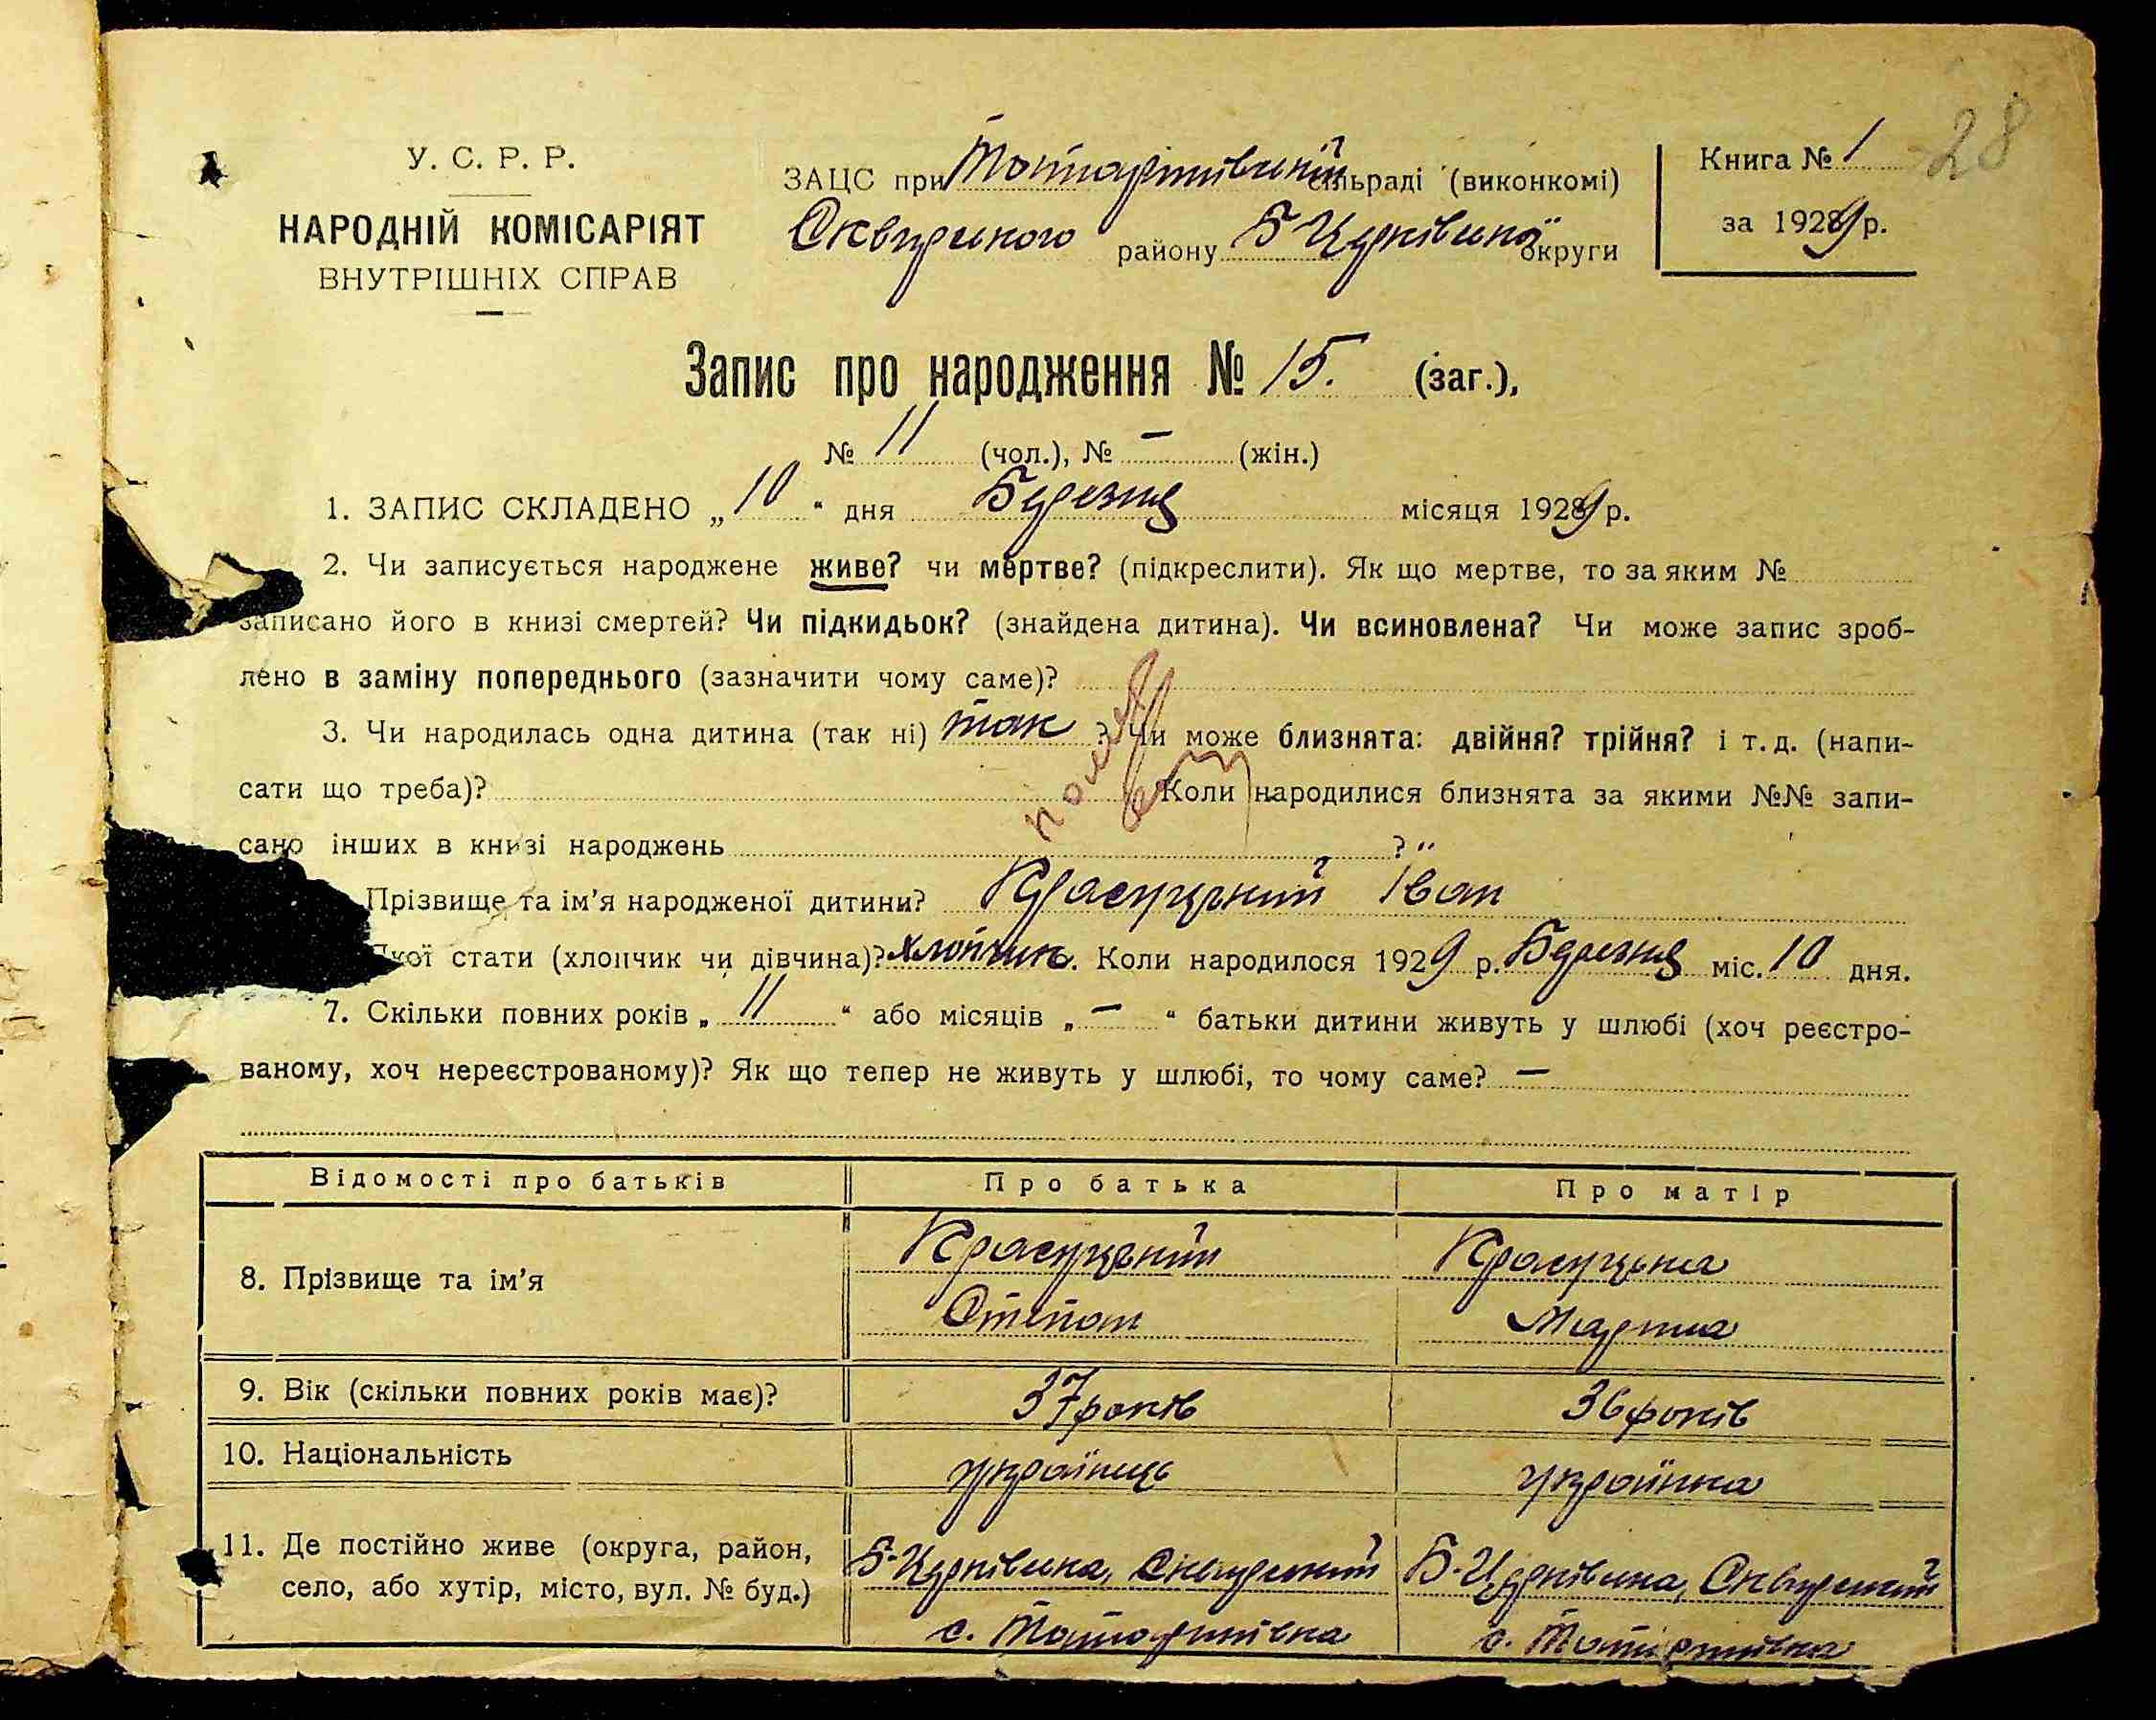 28
У. С. Р. Р.
НАРОДНІЙ КОМІСАРІЯТ
ВНУТРІШНІХ СПРАВ
ЗАЦС при Татаринівській сільраді (виконкомі)
Сквирського району Б-Церківської округи
Книга № 1
за 1929 р.
Запис про народження № 15. (заг.),
№ 11 (чол.), № — (жін.)
1. ЗАПИС СКЛАДЕНО „ 10 “ дня Березня місяця 1929 р.
2. Чи записується народжене живе? чи мертве? (підкреслити). Як що мертве, то за яким №
записано його в книзі смертей? Чи підкидьок? (знайдена дитина). Чи всиновлена? Чи може запис зроб-
лено в заміну попереднього (зазначити чому саме)?
3. Чи народилась одна дитина (так ні) так ? Чи може близнята: двійня? трійня? і т. д. (напи-
сати що треба)? Коли народилися близнята за якими №№ запи-
сано інших в книзі народжень ?
Прізвище та ім’я народженої дитини? Красуцький Іван
Якої стати (хлопчик чи дівчина)? хлопчик. Коли народилося 1929 р. Березня міс. 10 дня.
7. Скільки повних років „ 11 “ або місяців „ — “ батьки дитини живуть у шлюбі (хоч реєстро-
ваному, хоч нереєстрованому)? Як що тепер не живуть у шлюбі, то чому саме? —
Відомості про батьків Про батька Про матір
8. Прізвище та ім’я Красуцький Красуцька
Степан Марина
9. Вік (скільки повних років має)? 37 років 36 років
10. Національність українець українка
11. Де постійно живе (округа, район, Б-Церківська, Сквирський Б-Церківська, Сквирський
село, або хутір, місто, вул. № буд.) с. Татаринівка с. Татаринівка